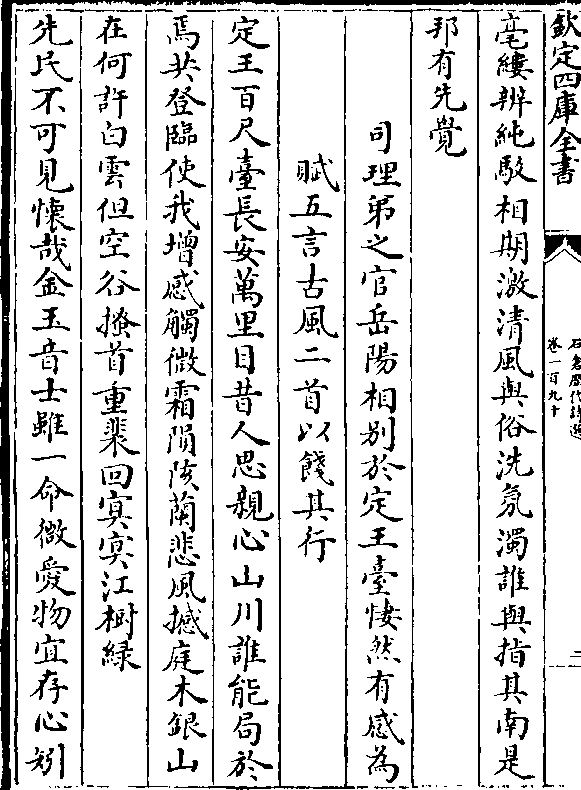 欽定四庫全書
石倉歷代詩選
卷一百九十
二
毫縷辨純駁相期激清風與俗洗氛濁誰與指其南是
邦有先覺
司理弟之官岳陽相别於定王臺悽然有感為
賦五言古風二首以餞其行
定王百尺臺長安萬里目昔人思親心山川誰能局於
焉共登臨使我增感觸微霜隕陔蘭悲風撼庭木銀山
在何許白雲但空谷搔首重裴回冥冥江樹緑
先民不可見懐哉金玉音士雖一命微愛物宜存心矧